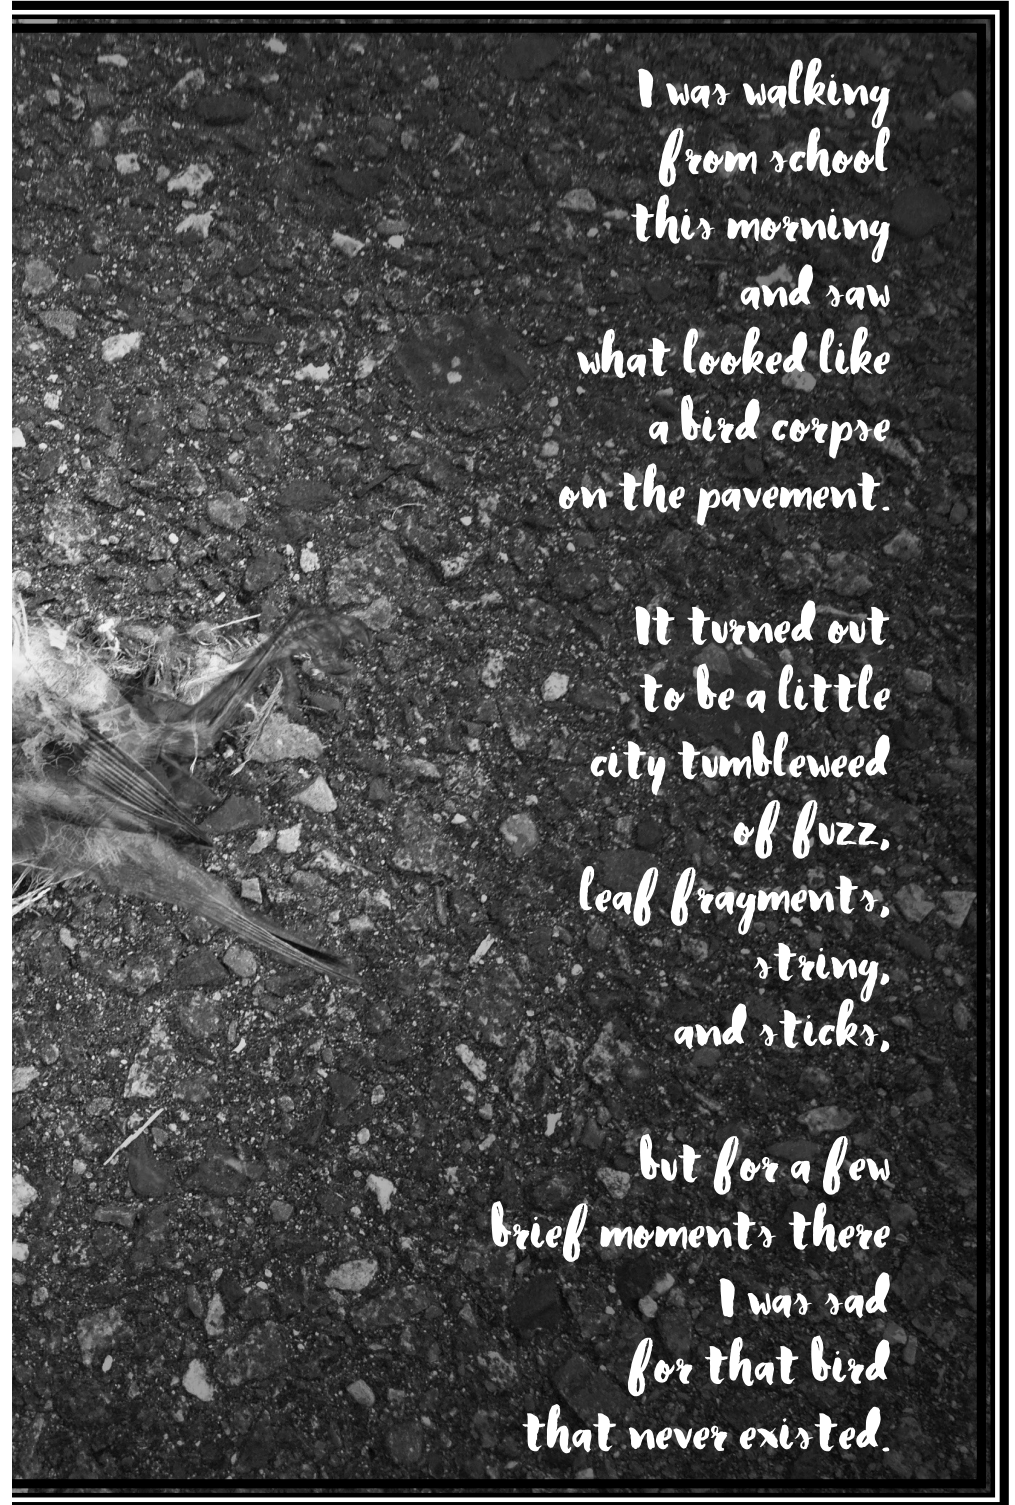 I was walking
from school
this morning
and saw
what looked like
a bird corpse
on the pavement.
It turned out
to be a little
city tumbleweed
of fuzz,
leaf fragments,
string,
and sticks,
but for a few
brief moments there
I was sad
for that bird
that never existed.